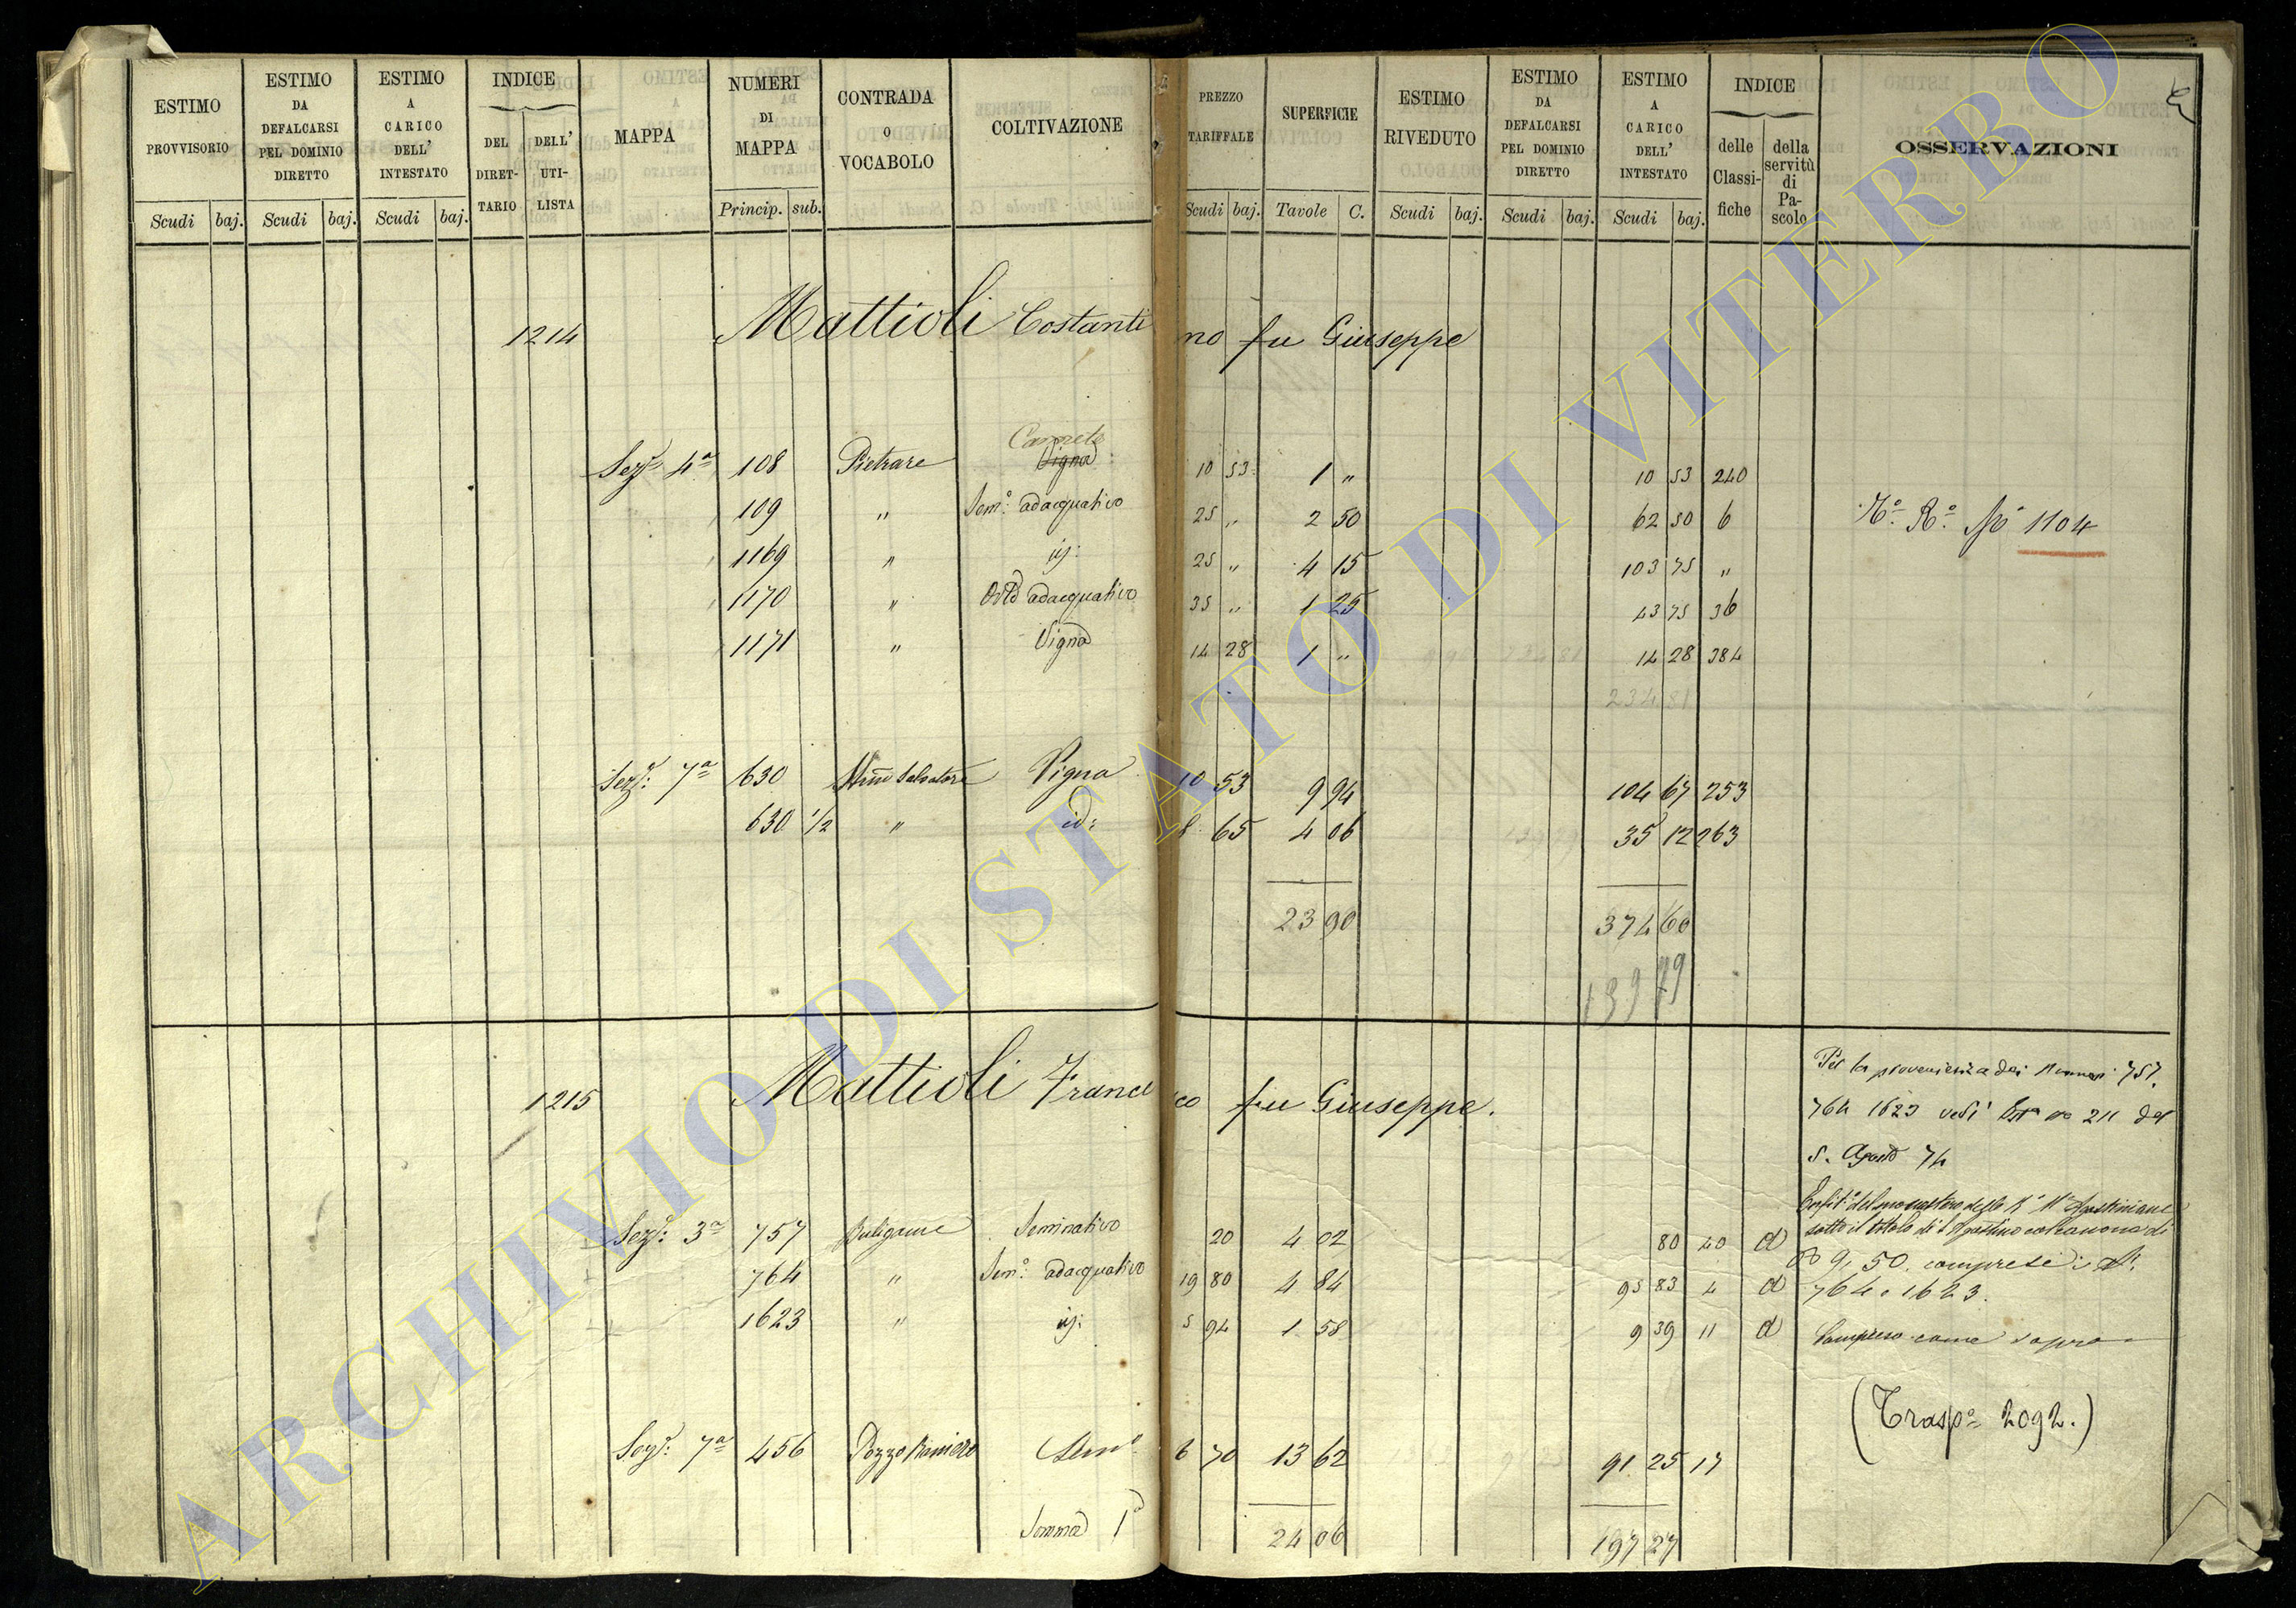 ESTIMO PROVVISORIO Scudi baj.
ESTIMO DA DEFALCARSI PEL DOMINIO DIRETTO Scudi baj.
ESTIMO A CARICO DELL' INTESTATO Scudi baj.
INDICE DEL DIRET-TARIO DELL' UTI-LISTA
MAPPA
NUMERI DI MAPPA Princip. sub.
CONTRADA O VOCABOLO
COLTIVAZIONE
PREZZO TARIFFALE Scudi baj.
SUPERFICIE Tavole C.
ESTIMO RIVEDUTO Scudi baj.
ESTIMO DA DEFALCARSI PEL DOMINIO DIRETTO Scudi baj.
ESTIMO A CARICO DELL' INTESTATO Scudi baj.
INDICE delle Classi-fiche della servitù di Pa-scolo
OSSERVAZIONI
1214 Mattioli Costantino fu Giuseppe
Canneto
Sez.e 4a 108 Pietrare Vigna 10 53 1 " 10 53 240
109 " Sem.o adacquativo 25 " 2 50 62 50 6
N° 1104
1169 " id: 25 " 4 15 103 75 "
1170 " Orto adacquativo 35 " 1 25 43 75 36
1171 " Vigna 14 28 1 " 14 28 384
234 81
Sez.e: 7a 630 Salvatore Vigna 10 53 9 94 104 67 253
630 1/2 " id: 8 65 4 06 35 12 263
23 90 374 60
139 79
1215 Mattioli Francesco fu Giuseppe.
Per la provenienza dei Numeri 757.
764 1623 vedi n° 211 del
5. Agosto 74
sotto il titolo di S Agostino
Sez.e: 3a 757 Buligame Seminativo 20 4 02 80 40 d
9, 50. compresi i N.
764 " Sem.o adacquativo 19 80 4 84 95 83 4 d 764 e 1623.
1623 " id: 5 94 1 58 9 39 11 d Compreso come sopra
(Trasp.o 2092.)
Sez.e: 7a 456 Pozzo Raniero Sem.o 6 70 13 62 91 25 17
Somma 24 06 197 27
ARCHIVIO DI STATO DI VITERBO